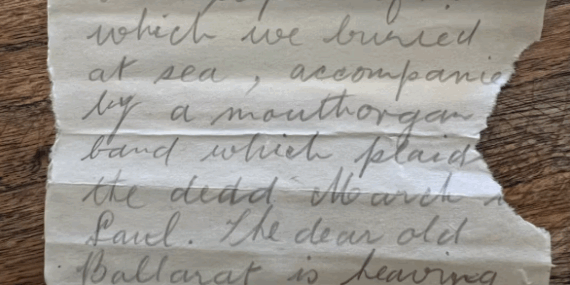 which we buried
at sea, accompanie
by a mouthorgan
band which plaid
the dedd March
Saul. The dear old
Ballarat is heaving